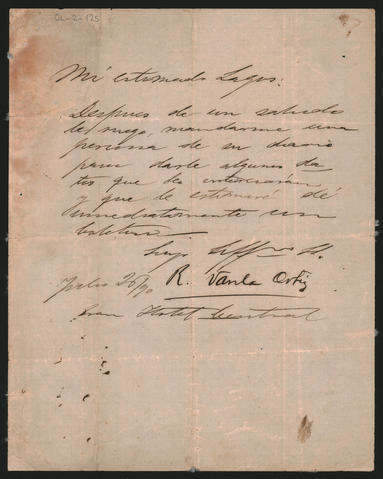 OL-2-125
Mi estimado Lagos:
Despues de un saludo
les ruego, mandarme una
persona de su diario
para darle algunos da
tos que les interesarán
y que le estimaré dé
inmediatamente un
boletin
Suyo Affmo S.
Julio 26/90 R. Varela Ortiz
Gran Hotel Central